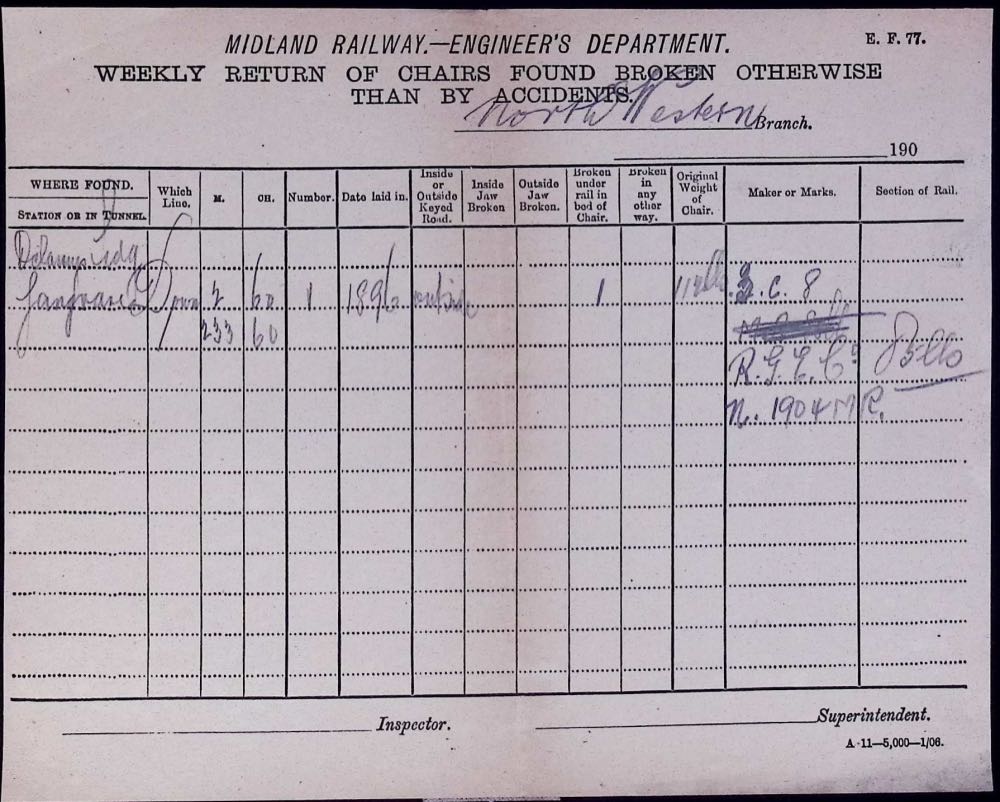 MIDLAND RAILWAY.—ENGINEER'S DEPARTMENT.
E. F. 77.
WEEKLY RETURN OF CHAIRS FOUND BROKEN OTHERWISE
THAN BY ACCIDENTS.
North Western Branch.
190
WHERE FOUND.
STATION OR IN TUNNEL.
Which Line.
M.
CH.
Number.
Date laid in.
Inside or Outside Keyed Road.
Inside Jaw Broken
Outside Jaw Broken.
Broken under rail in bed of Chair.
Broken in any other way.
Original Weight of Chair.
Maker or Marks.
Section of Rail.
Delaneys Sdg
Langrave Down 2 60 1 1896 outside 1 S.C. 8
233 60
R.G.E.Co
N. 1904 M R.
Inspector.
Superintendent.
A-11—5,000—1/06.